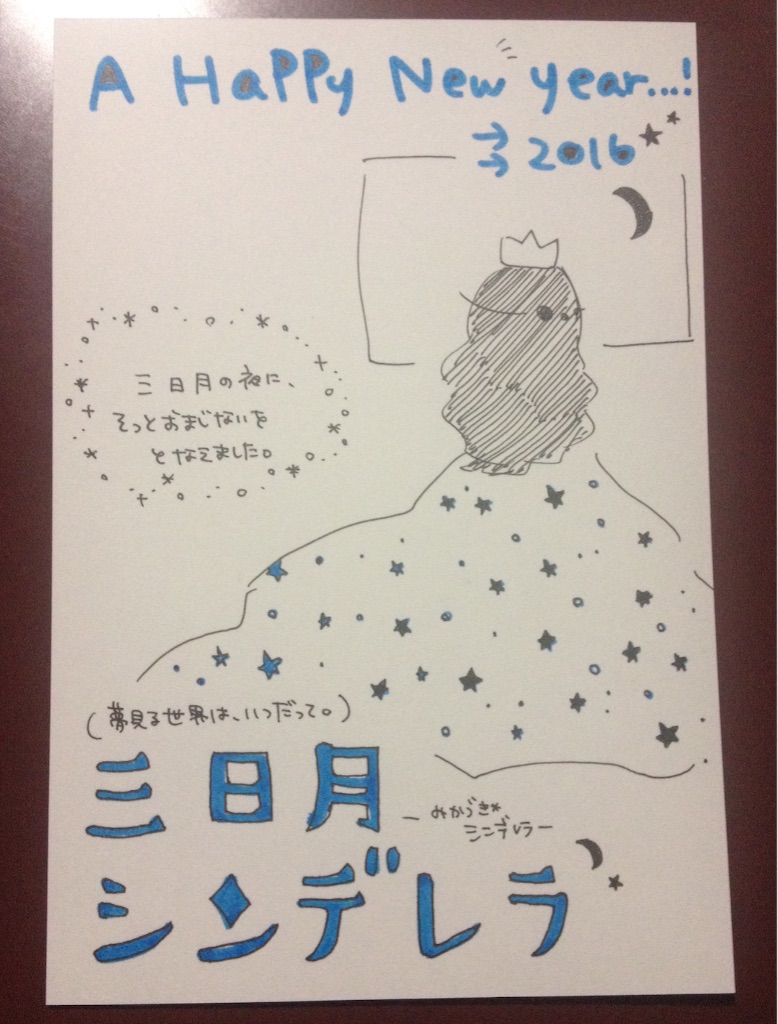 A HaPPy New year...!
→→2016
三日月の夜に、
そっとおまじないを
となえました。
(夢見る世界は、いつだって。)
三日月
ーみかづき*
シンデレラー
シンデレラ